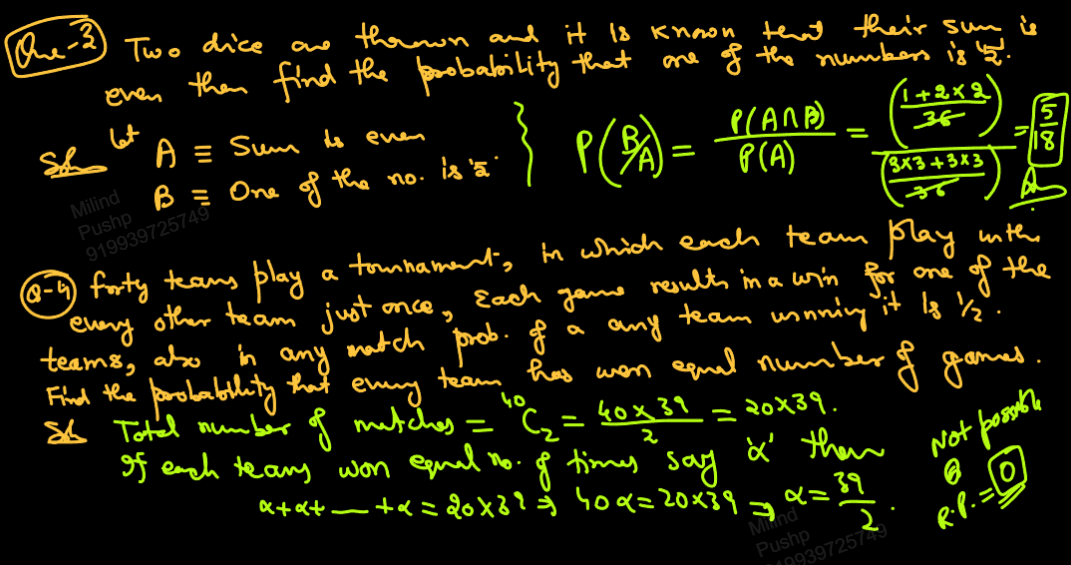 Que-3 Two dice are thrown and it is known that their sum is
even then find the probability that one of the numbers is '2'.
Sol let A ≡ Sum is even
B ≡ One of the no. is '2'
} P(B/A) = P(A∩B)/P(A) = ((1+2×2)/36)/((3×3+3×3)/36) = 5/18 Ans
Q-4 forty teams play a tournament, in which each team play with
every other team just once, Each game results in a win for one of the
teams, also in any match prob. of a any team winning it is 1/2.
Find the probability that every team has won equal number of games.
Sol Total number of matches = ⁴⁰C₂ = 40×39/2 = 20×39.
If each teams won equal no. of times say 'α' then
α+α+ — +α = 20×39 ⇒ 40α = 20×39 ⇒ α = 39/2.
Not possible
R.P. = 0
Milind
Pushp
919939725749
Milind
Pushp
919939725749